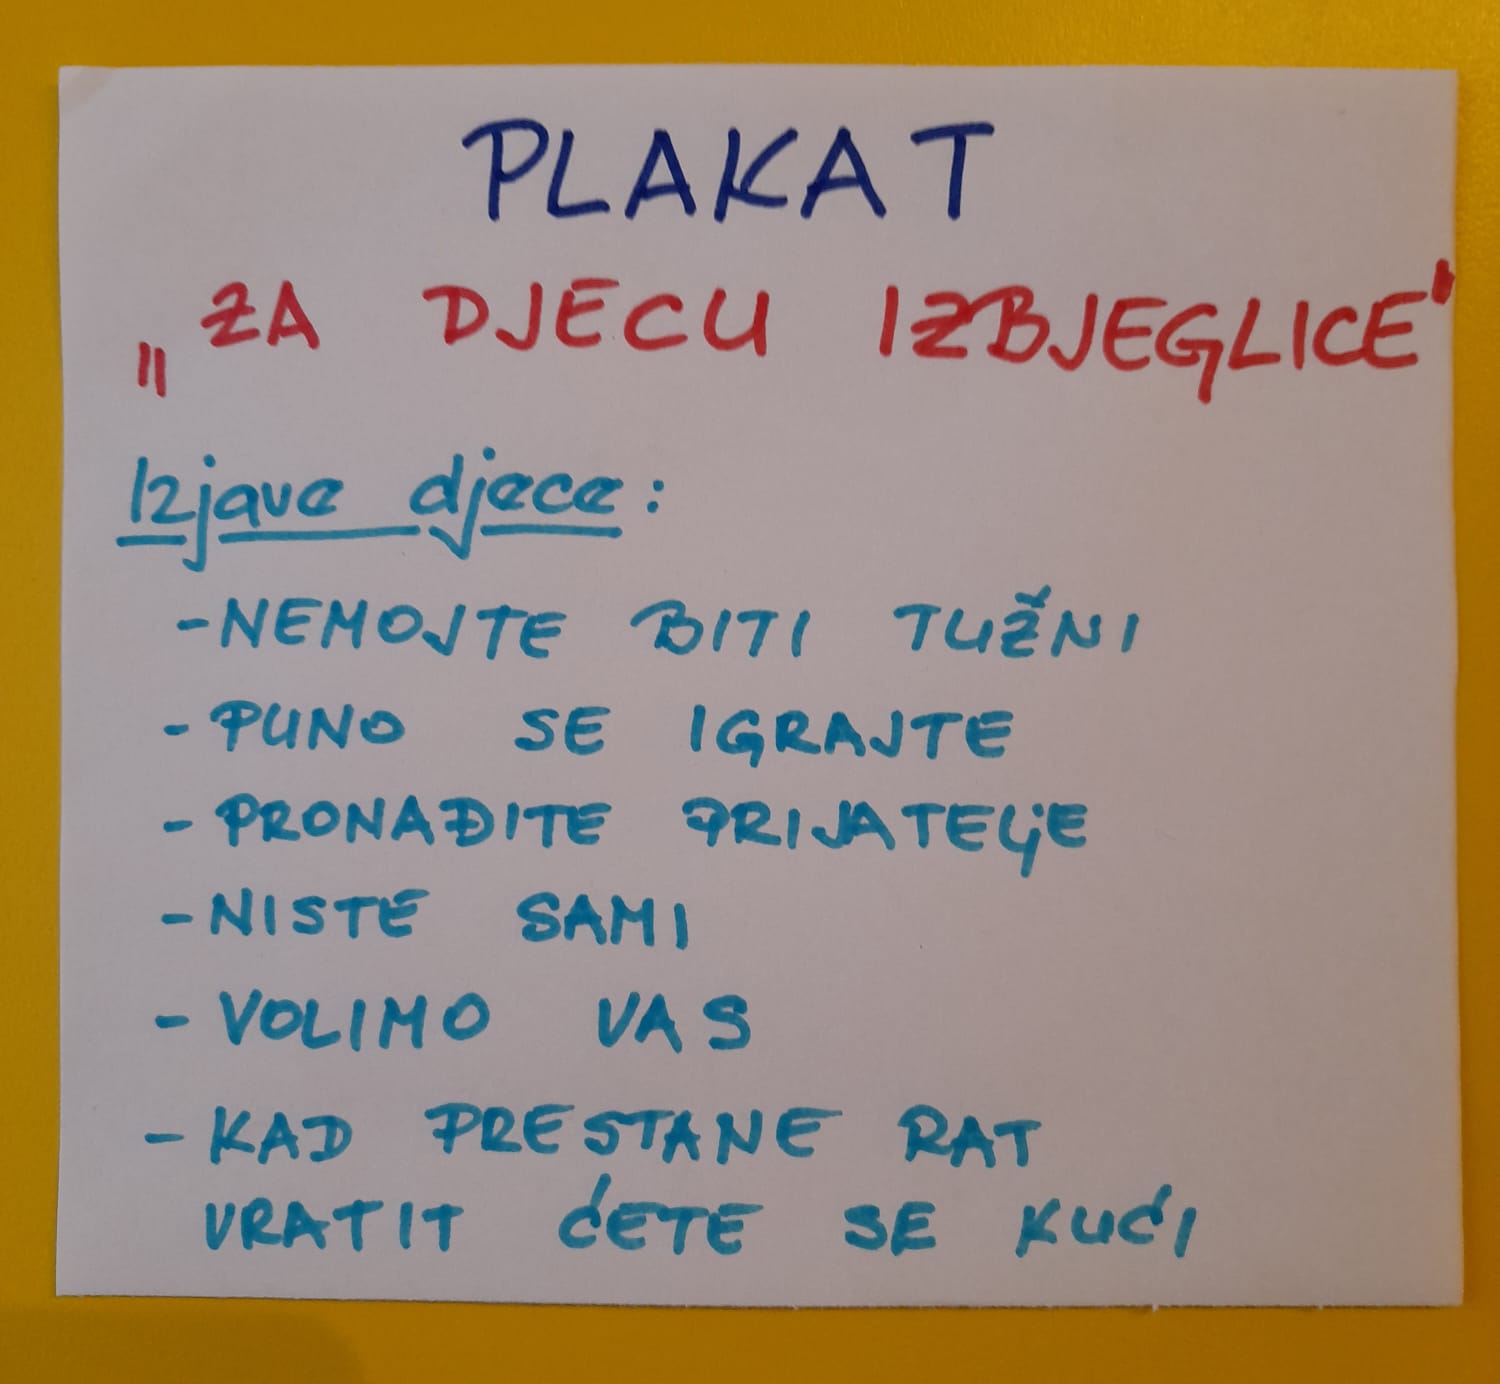 PLAKAT
„ZA DJECU IZBJEGLICE"
Izjave djece:
- NEMOJTE BITI TUŽNI
- PUNO SE IGRAJTE
- PRONAĐITE PRIJATELJE
- NISTE SAMI
- VOLIMO VAS
- KAD PRESTANE RAT
VRATIT ĆETE SE KUĆI